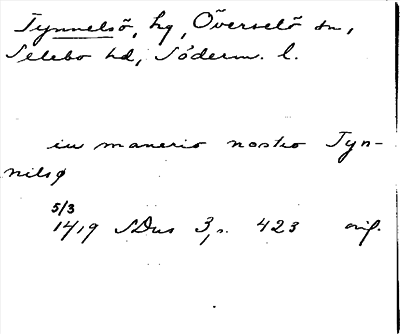 Tynnelsö, hg, Överselö sn,
Selebo hd, Söderm. l.
in manerio nostro Tyn-
nilsø
5/3
1419 SDns 3, s. 423 orig.